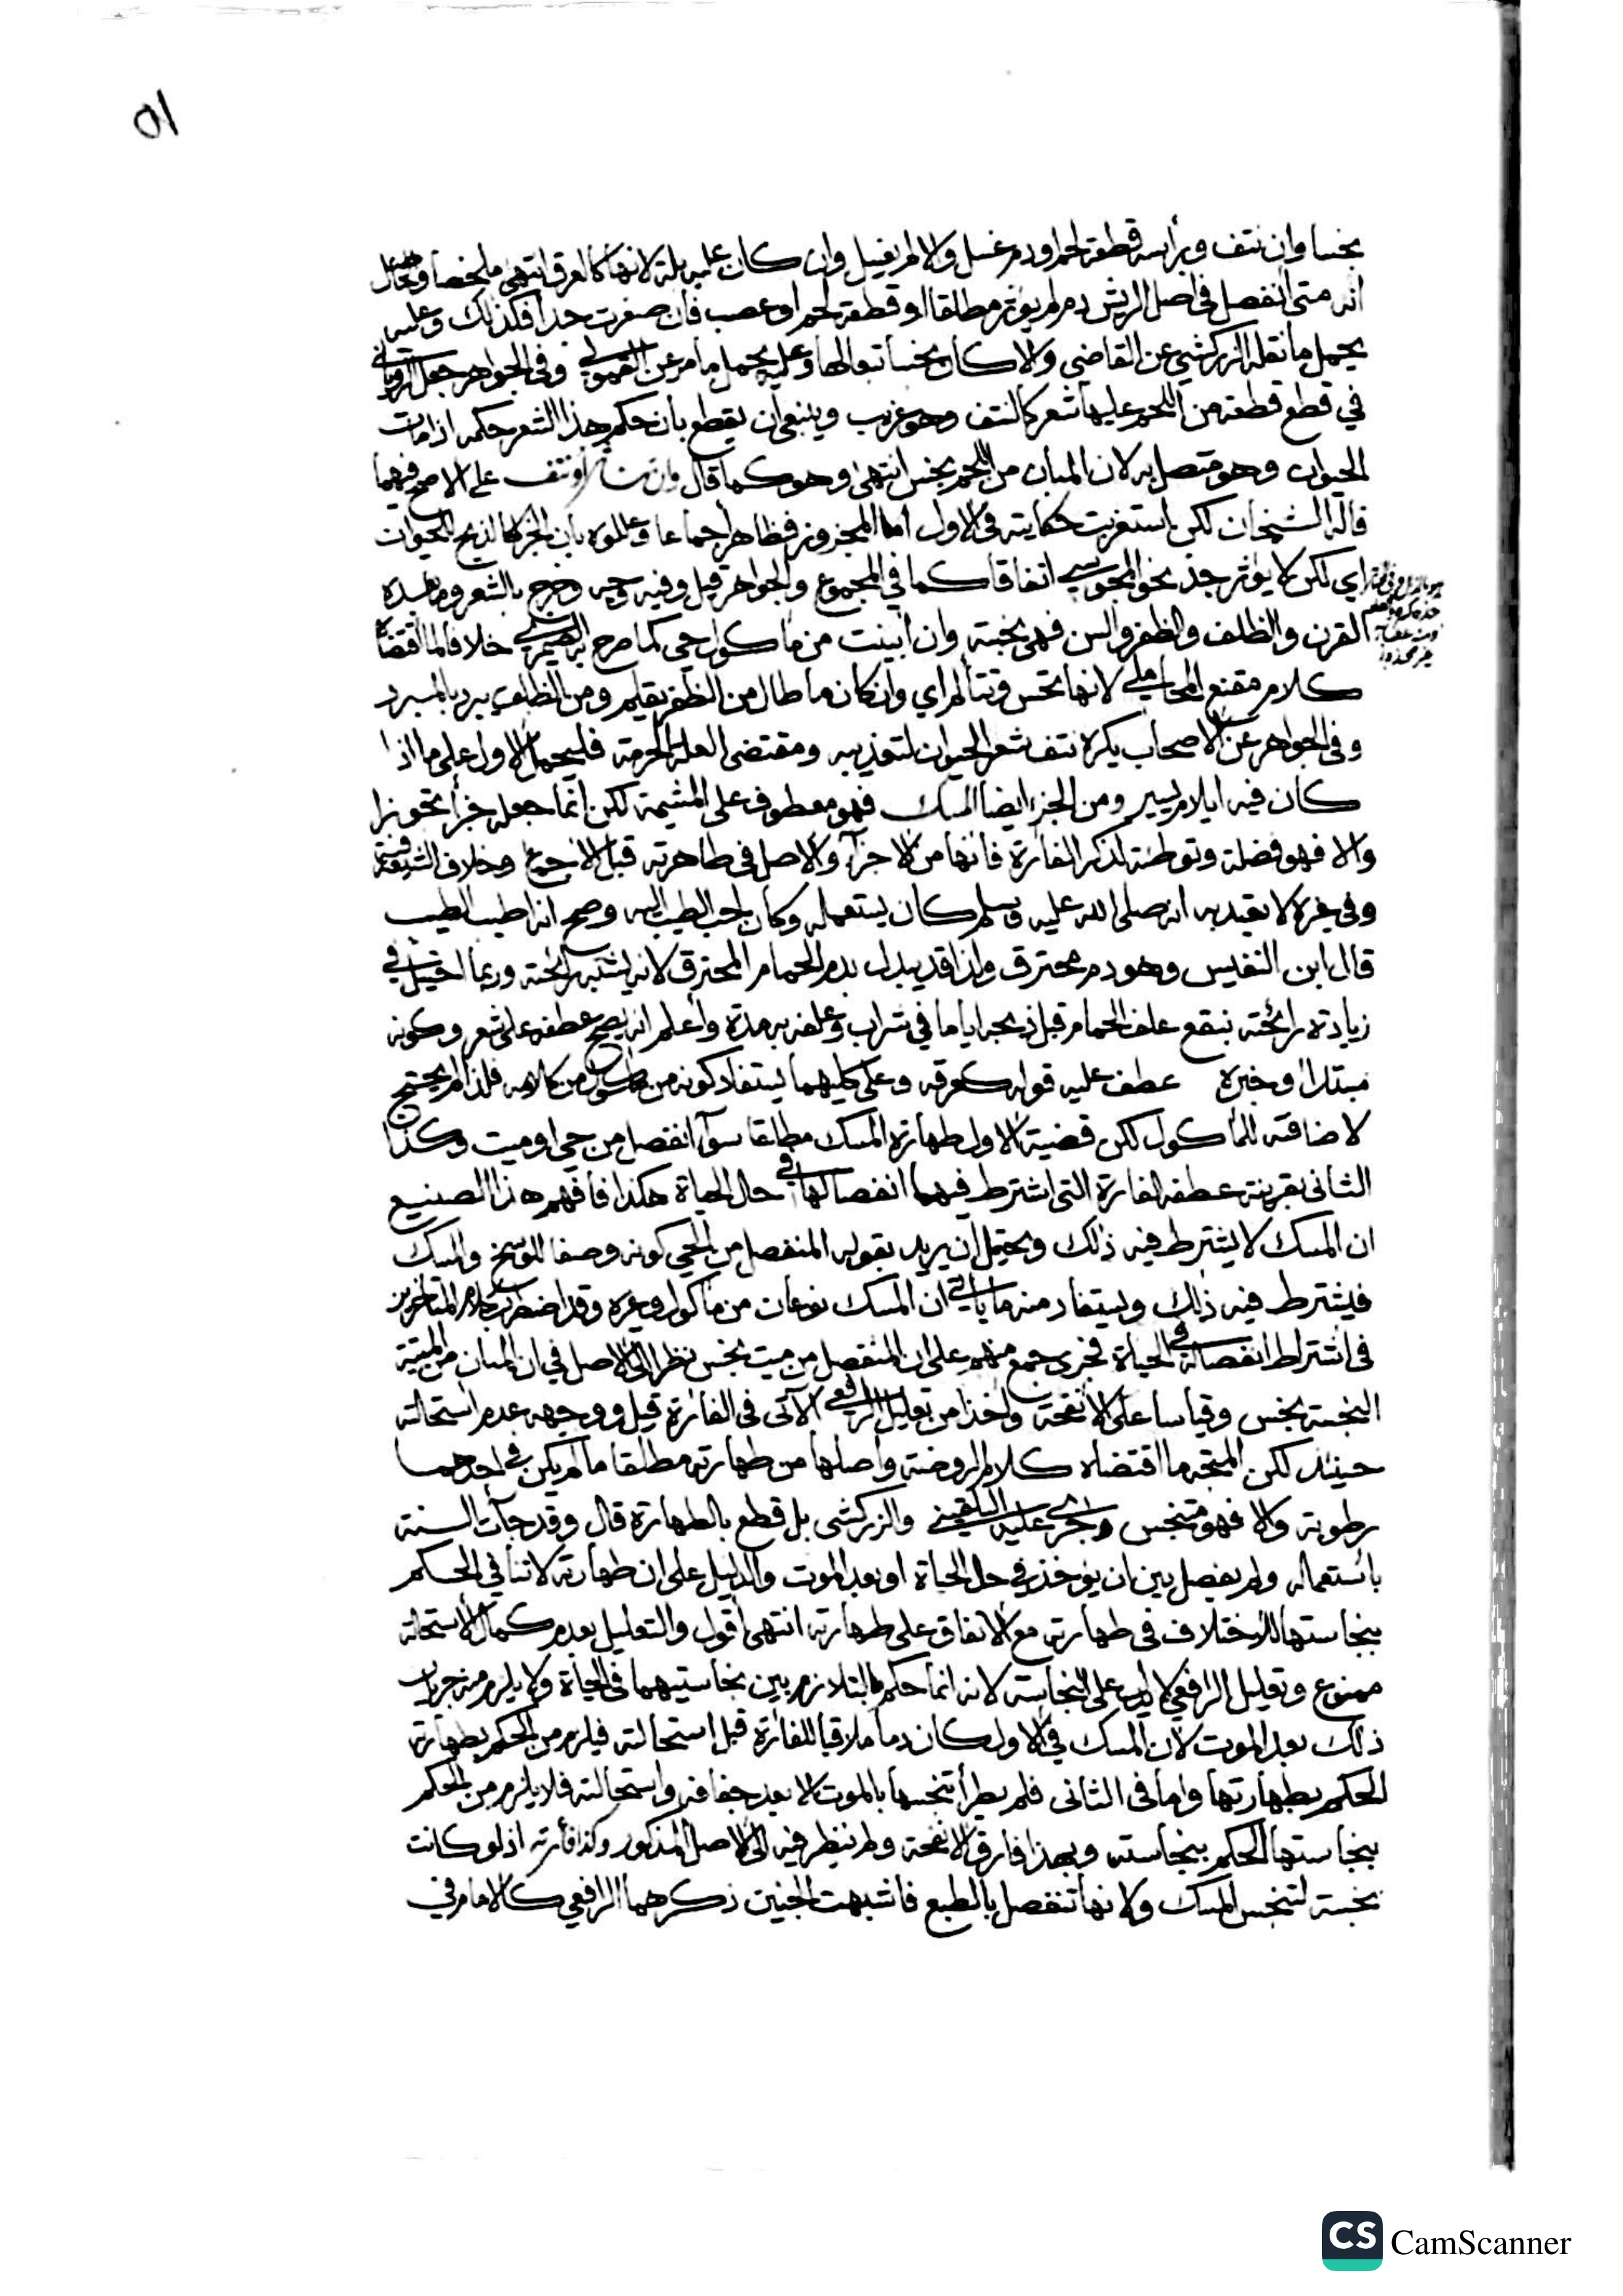 ٥١
نجسا وان نتف وبرأسه قطعة لحم او دم غسل والا لم يغسل وان كان عليه بلة لانها كالعرق انتهى ملخصا
انه متى انفصل في اصل الريش دم لم يؤثر مطلقا او قطعة لحم او عصب فان صغرت جدا فكذلك وعليه
يحمل ما نقله الزركشي عن القاضي والا كان نجسا تبعا لها وعليه يحمل ما مر عن القمولي وفي الجواهر جعل الروياني
في قطع قطعة من اللحم عليها شعر كالنتف وهو غريب وينبغي ان يقطع بان حكم هذا الشعر حكمه اذا مات
الحيوان وهو متصل به لان المبان من اللحم نجس انتهى وهو كما قال او نتف على الاصح فيهما
قاله الشيخان لكن استغربت حكايته في الاول اما المجزوز فطاهر اجماعا بان الجز كالذبح للحيوان
اي لكن لا يؤثر جذ نحو المجوسي اتفاقا كما في المجموع والجواهر قيل وفيه وجه وخرج بالشعر وما بعده
القرن والظلف والظفر والسن فهي نجسة وان ابينت من ماكول حي كما صرح به خلافا لما اقتضاه
كلام مقنع المحاملي لانها تحس وتتألم اي وان كان ما طال من الظفر يقلم ومن الظلف يبرد بالمبرد
وفي الجواهر عن الاصحاب يكره نتف شعر الحيوان لتعذيبه ومقتضى العلة الحرمة فليحمل الاول على ما اذا
كان فيه ايلام يسير ومن الجزء ايضا المسك فهو معطوف على المشيمة لكن انما جعله جزأ تجوزا
والا فهو فضلة وتوطئة لذكر الفارة فانها من الاجزآ والاصل في طاهرته قبل الاجماع وخلاف الشيعة
وفي غيره لا يعتد به انه صلى الله عليه وسلم كان يستعمله وكان احب الطيب اليه وصح انه اطيب الطيب
قال ابن النفيس وهو دم محترق ولذا قد يبدل بدم الحمام المحترق لانه يشبه رائحته وربما اختيل في
زيادة رائحته بنقع علف الحمام قبل ذبحه اياما في شراب وعلفه به مدة واعلم انه يصح عطفه على شعر وكونه
مبتدا وخبره عطف عليه قوله كعرقه وعلى كليهما يستفاد كونه من ماكول من كلامه فلذا لم يحتج
لاضافته للماكول لكن قضية الاول طهارة المسك مطلقا سوآ انفصل من حي او ميت وكذا
الثاني بقرينة عطفه الفارة التي اشترط فيها انفصالها في حال الحياة هكذا فافهم هذا الصنيع
ان المسك لا يشترط فيه ذلك ويحتمل ان يريد بقوله المنفصل من الحي كونه وصفا للوسخ والمسك
فيشترط فيه ذلك ويستفاد منه ما يأتي ان المسك نوعان من ماكول وغيره وقد اضطرب كلام المتاخرين
في اشتراط انفصاله في الحياة فجرى جمع منهم على ان المنفصل من ميت نجس نظرا الى الاصل في ان المبان من الميتة
النجسة نجس وقياسا على الانفحة واخذا من تعليل الرافعي الآتي في الفارة قيل ووجهه عدم استحالته
حينئذ لكن المتجه ما اقتضاه كلام الروضة واصلها من طهارته مطلقا ما لم يكن في احدهما
رطوبة والا فهو متنجس وجرى عليه البلقيني والزركشي بل قطع بالطهارة قال وقد جآت السنة
باستعماله ولم يفصل بين ان يؤخذ في حال الحياة او بعد الموت والدليل على ان طهارته لا تنافي الحكم
بنجاستها الاختلاف في طهارتها مع الاتفاق على طهارته انتهى اقول والتعليل بعدم كمال الاستحالة
ممنوع وتعليل الرافعي لا يدل على النجاسة لانه انما حكم بالتلازم بين نجاستيهما في الحياة ولا يلزم منه جريان
ذلك بعد الموت لان المسك في الاول كان دما ملاقيا للفارة قبل استحالته فيلزم من الحكم بطهارته
الحكم بطهارتها واما في الثاني فلم يطرأ تنجسها بالموت الا بعد جفافه واستحالته فلا يلزم من الحكم
بنجاستها الحكم بنجاسته وبهذا فارق الانفحة ولم ينظر فيه الى الاصل المذكور وكذا فأرته اذ لو كانت
نجسة لتنجس المسك ولانها تنفصل بالطبع فاشبهت الجنين ذكرهما الرافعي كالامام في
CS CamScanner